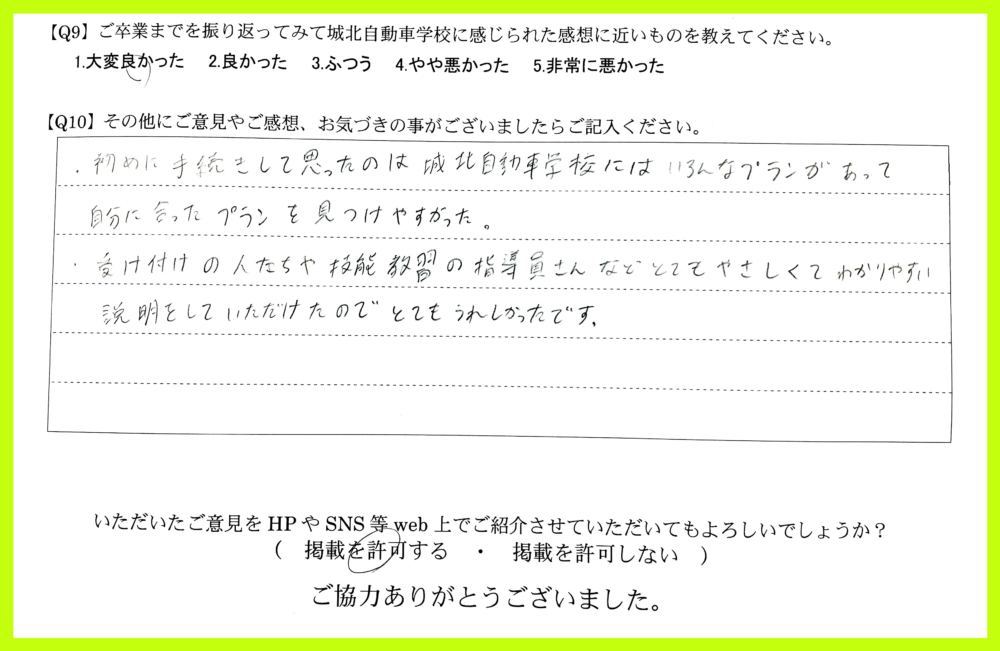 【Q9】ご卒業までを振り返ってみて城北自動車学校に感じられた感想に近いものを教えてください。
1.大変良かった 2.良かった 3.ふつう 4.やや悪かった 5.非常に悪かった
【Q10】その他にご意見やご感想、お気づきの事がございましたらご記入ください。
・初めに手続きして思ったのは城北自動車学校にはいろんなプランがあって
自分に合ったプランを見つけやすかった。
・受け付けの人たちや技能教習の指導員さんなどとてもやさしくてわかりやすい
説明をしていただけたのでとてもうれしかったです。
いただいたご意見をHPやSNS等web上でご紹介させていただいてもよろしいでしょうか？
( 掲載を許可する ・ 掲載を許可しない )
ご協力ありがとうございました。